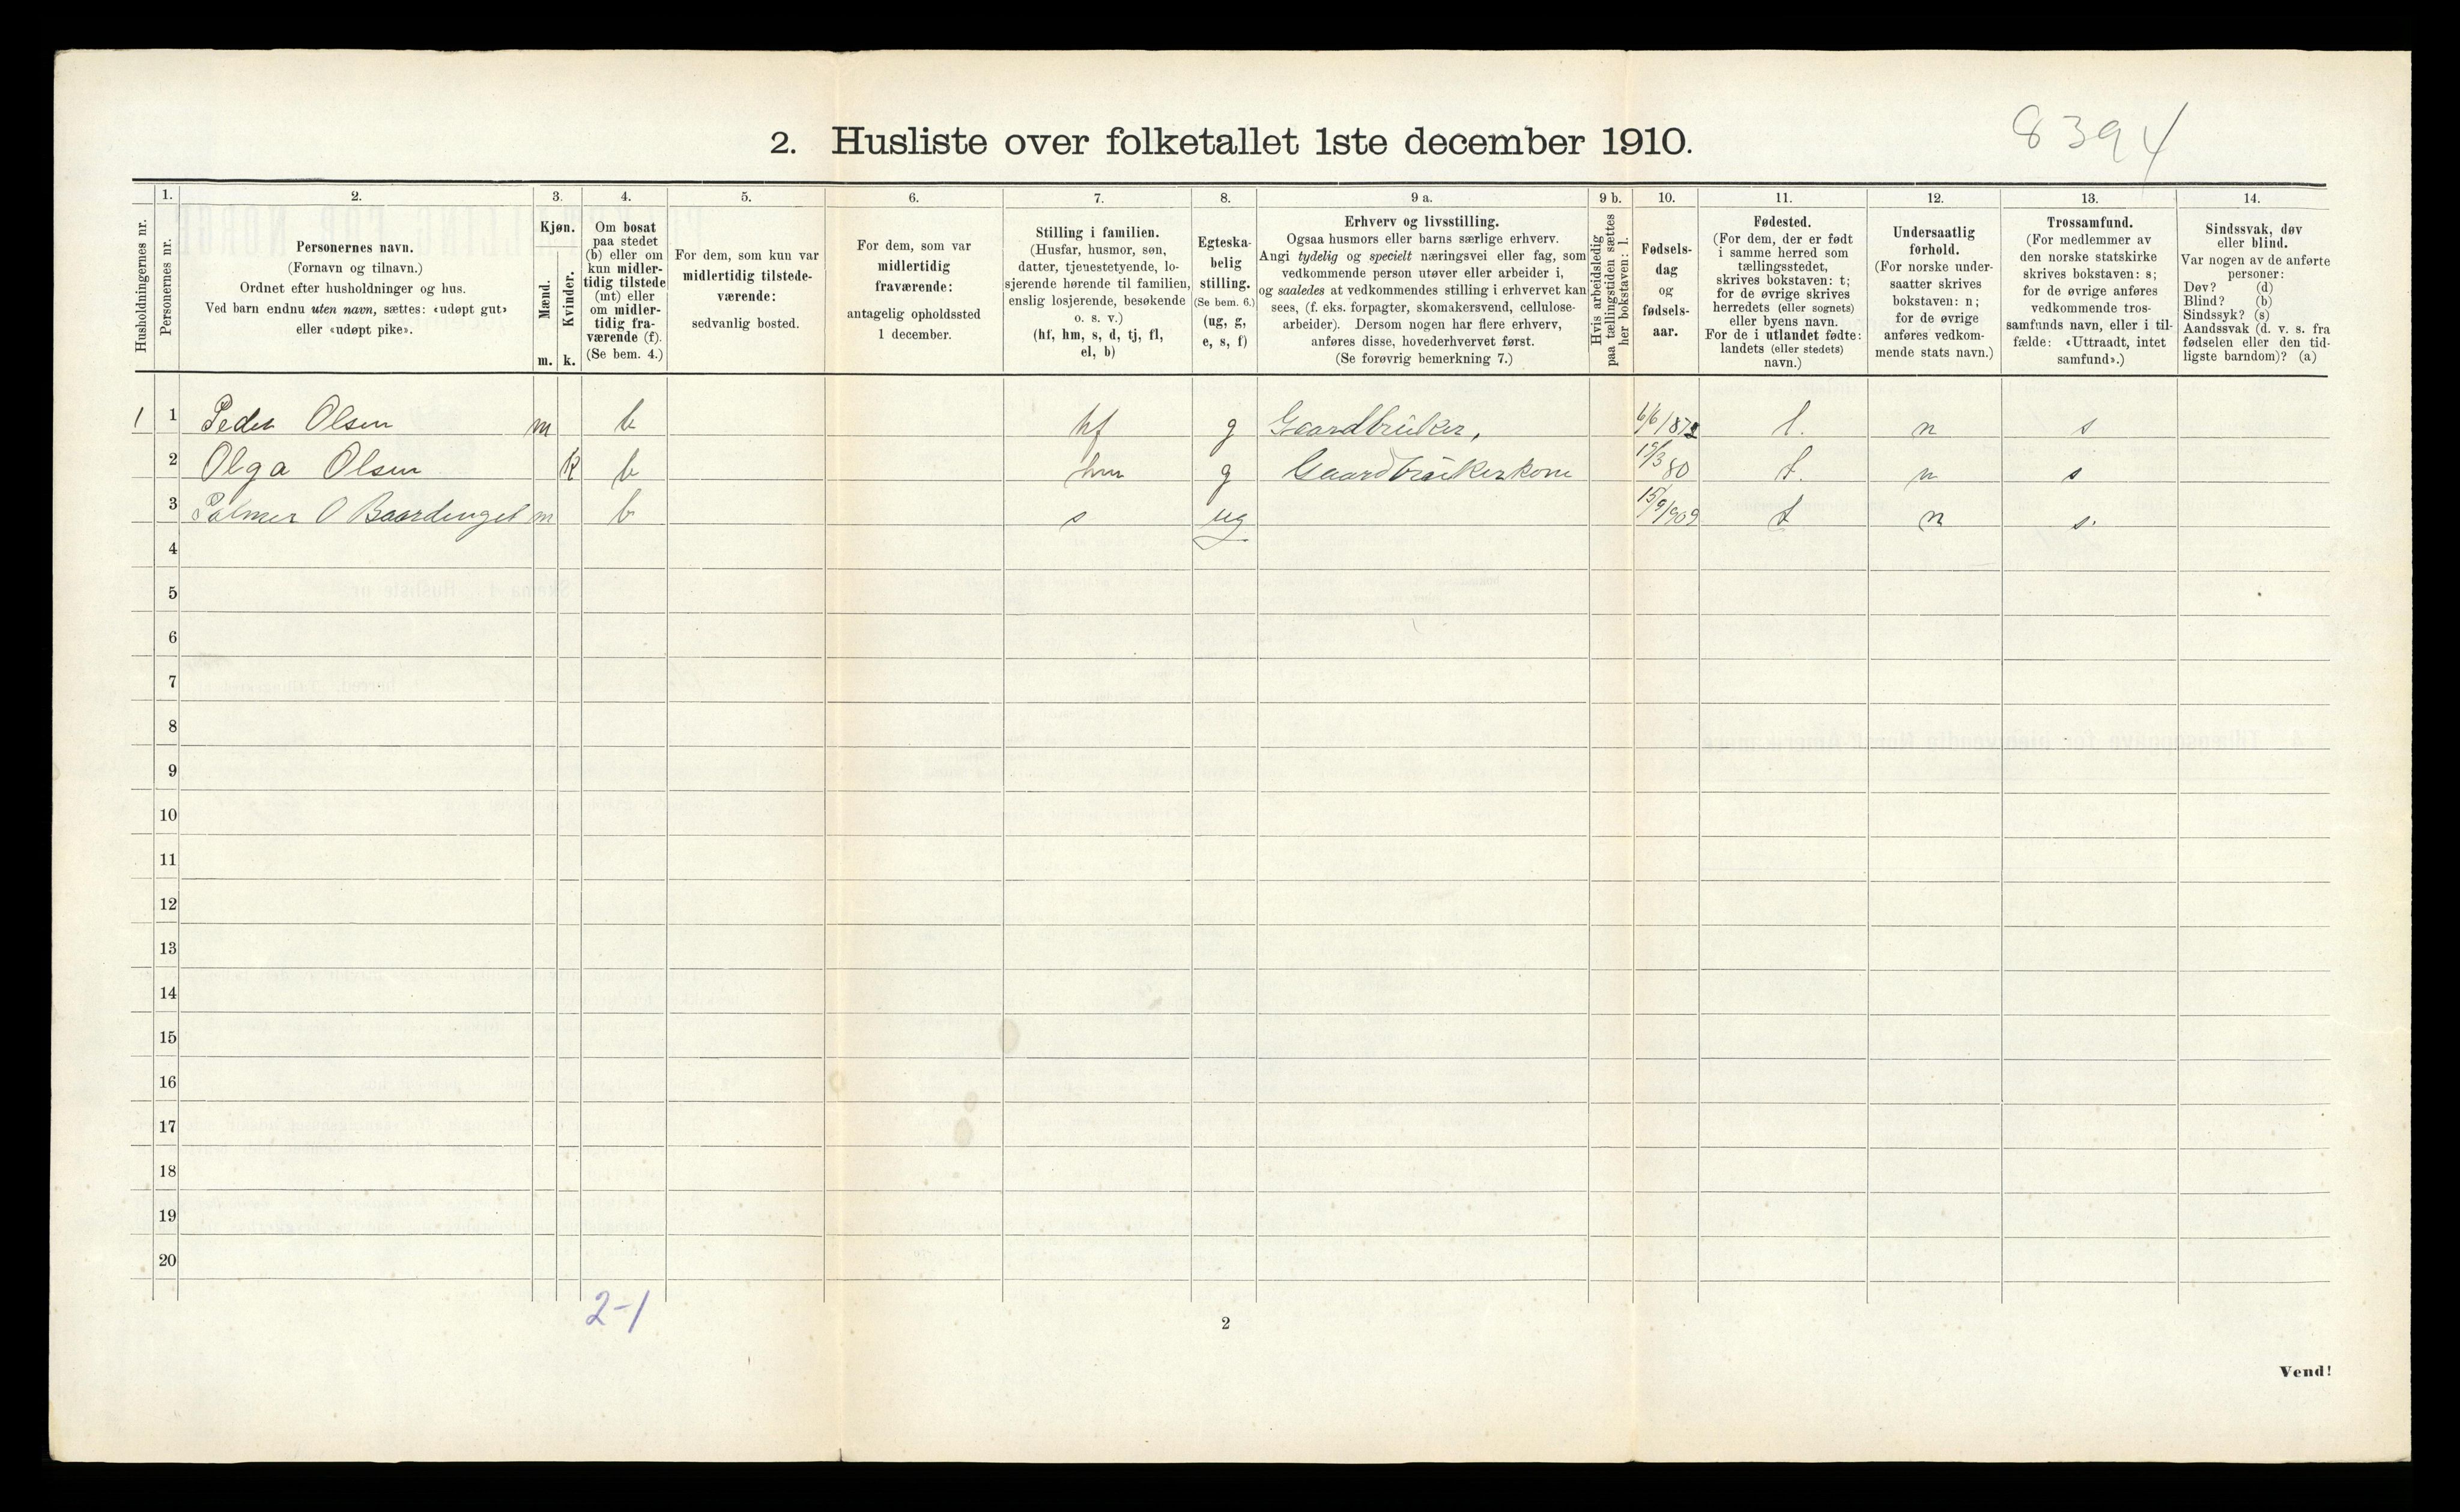 8394
2. Husliste over folketallet 1ste december 1910.
Husholdningernes nr.
1.
Personernes nr.
2.
Personernes navn.
(Fornavn og tilnavn.)
Ordnet efter husholdninger og hus.
Ved barn endnu uten navn, sættes: «udøpt gut»
eller «udøpt pike».
3.
Kjøn.
Mænd.
m.
Kvinder.
k.
4.
Om bosat
paa stedet
(b) eller om
kun midler-
tidig tilstede
(mt) eller
om midler-
tidig fra-
værende (f).
(Se bem. 4.)
5.
For dem, som kun var
midlertidig tilstede-
værende:
sedvanlig bosted.
6.
For dem, som var
midlertidig
fraværende:
antagelig opholdssted
1 december.
7.
Stilling i familien.
(Husfar, husmor, søn,
datter, tjenestetyende, lo-
sjerende hørende til familien,
enslig losjerende, besøkende
o. s. v.)
(hf, hm, s, d, tj, fl,
el, b)
8.
Egteska-
belig
stilling.
(Se bem. 6.)
(ug, g,
e, s, f)
9 a.
Erhverv og livsstilling.
Ogsaa husmors eller barns særlige erhverv.
Angi tydelig og specielt næringsvei eller fag, som
vedkommende person utøver eller arbeider i,
og saaledes at vedkommendes stilling i erhvervet kan
sees, (f. eks. forpagter, skomakersvend, cellulose-
arbeider). Dersom nogen har flere erhverv,
anføres disse, hovederhvervet først.
(Se forøvrig bemerkning 7.)
9 b.
Hvis arbeidsledig
paa tællingstiden sættes
her bokstaven: l.
10.
Fødsels-
dag
og
fødsels-
aar.
11.
Fødested.
(For dem, der er født
i samme herred som
tællingsstedet,
skrives bokstaven: t;
for de øvrige skrives
herredets (eller sognets)
eller byens navn.
For de i utlandet fødte:
landets (eller stedets)
navn.)
12.
Undersaatlig
forhold.
(For norske under-
saatter skrives
bokstaven: n;
for de øvrige
anføres vedkom-
mende stats navn.)
13.
Trossamfund.
(For medlemmer av
den norske statskirke
skrives bokstaven: s;
for de øvrige anføres
vedkommende tros-
samfunds navn, eller i til-
fælde: «Uttraadt, intet
samfund».)
14.
Sindssvak, døv
eller blind.
Var nogen av de anførte
personer:
Døv? (d)
Blind? (b)
Sindssyk? (s)
Aandssvak (d. v. s. fra
fødselen eller den tid-
ligste barndom)? (a)
1 1 Peder Olsen m b hf g Gaardbrüker, 6/6/872 t. n s
2 Olga Olsen K b hm g Gaardbrükerkone /3 80 t. n s
3 Palmer O Baardenget m b s ug 15/9/909 t n s.
4
5
6
7
8
9
10
11
12
13
14
15
16
17
18
19
20
2-1
2
Vend!